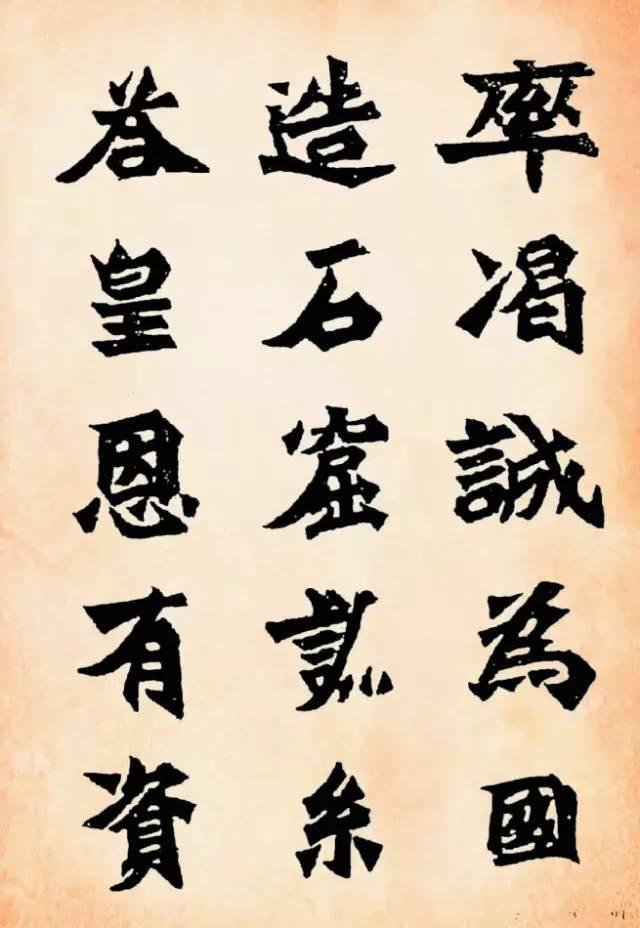 率渴誠為國
造石窟系
荅皇恩有資